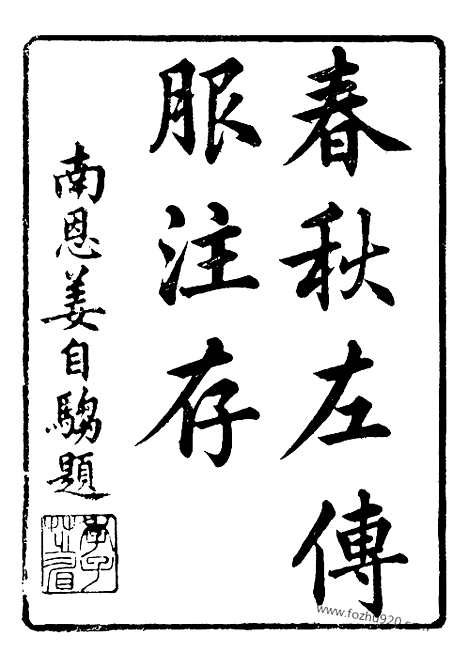 春秋左傳
服注存
南恩姜自騶題
www.fozhu920.com